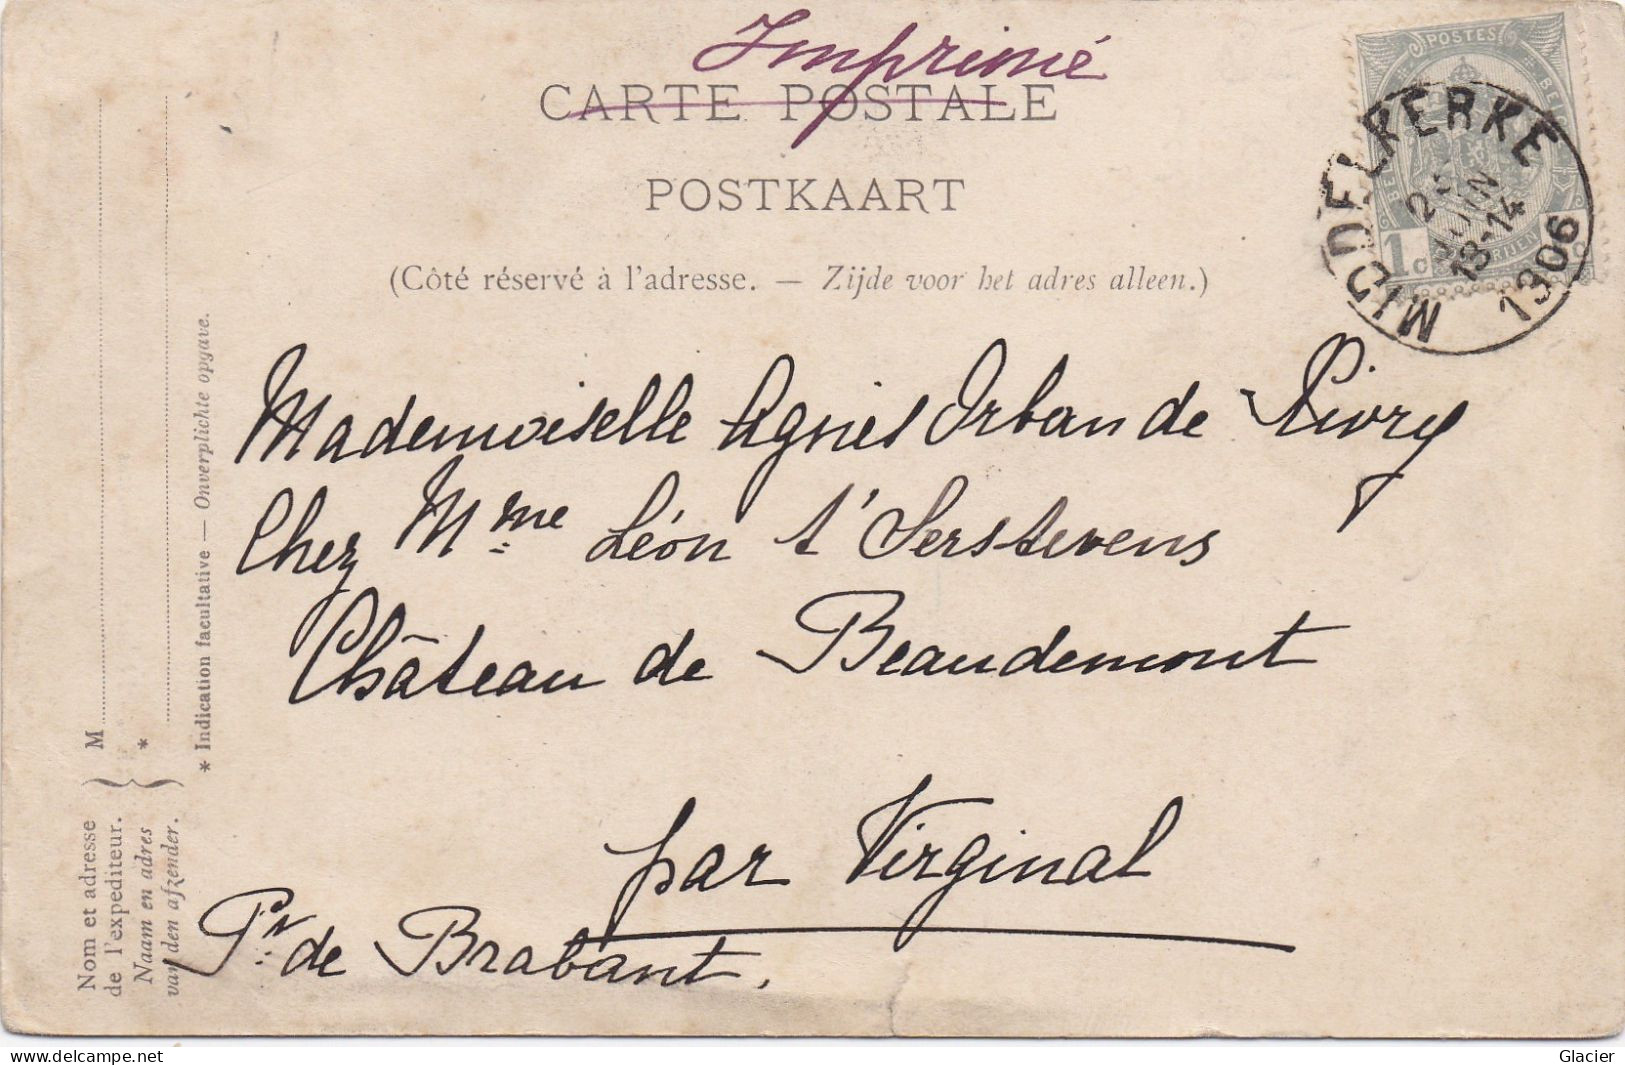 Imprimé
CARTE POSTALE
POSTKAART
(Côté réservé à l'adresse. — Zijde voor het adres alleen.)
POSTES
MIDDELKERKE
JUIN
13-14
1906
1c
Mademoiselle Agnès Orban de Xivry
Chez Mme Léon t'Serstevens
Château de Beaudemont
par Virginal
Pr. de Brabant.
Nom et adresse
de l'expéditeur.
Naam en adres
van den afzender.
M
*
* Indication facultative — Onverplichte opgave.
www.delcampe.net
Glacier